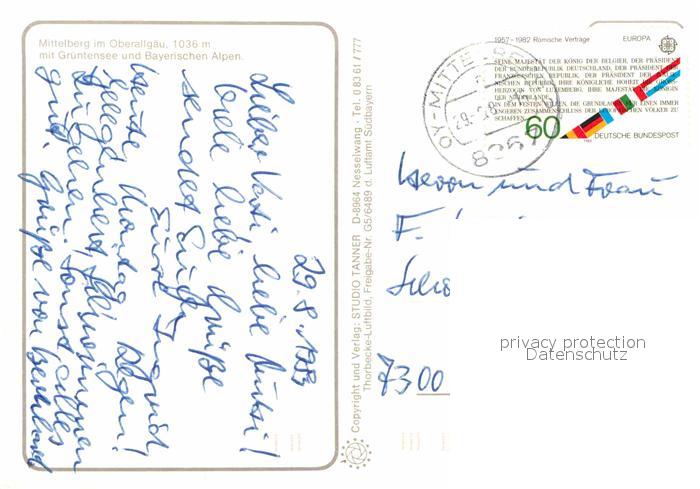 Mittelberg im Oberallgäu, 1036 m
mit Grüntensee und Bayerischen Alpen.
29.8.1983
Lieber Vati, liebe Mutti!
Viele liebe Grüße
sendet Euch
Eure Ingrid
Heute Montag Regen!
gut.
sonst alles
Grüße von
Copyright und Verlag: STUDIO TANNER D-8964 Nesselwang · Tel. 0 83 61 / 777
Thorbecke-Luftbild, Freigabe-Nr. G5/6489 d. Luftamt Südbayern
OY-MITTELBERG
29.-8
8967
1957-1982 Römische Verträge
EUROPA
SEINE MAJESTÄT DER KÖNIG DER BELGIER, DER PRÄSIDENT
DER BUNDESREPUBLIK DEUTSCHLAND, DER PRÄSIDENT DER
FRANZÖSISCHEN REPUBLIK, DER PRÄSIDENT DER
REPUBLIK, IHRE KÖNIGLICHE HOHEIT DIE GROSS-
HERZOGIN VON LUXEMBURG, IHRE MAJESTÄT DIE KÖNIGIN
DER NIEDERLANDE,
IN DEM FESTEN WILLEN, DIE GRUNDLAGEN EINEN IMMER
ENGEREN ZUSAMMENSCHLUSS DER EUROPÄISCHEN VÖLKER ZU
SCHAFFEN
60
DEUTSCHE BUNDESPOST
Herrn und Frau
F.
7300
privacy protection
Datenschutz